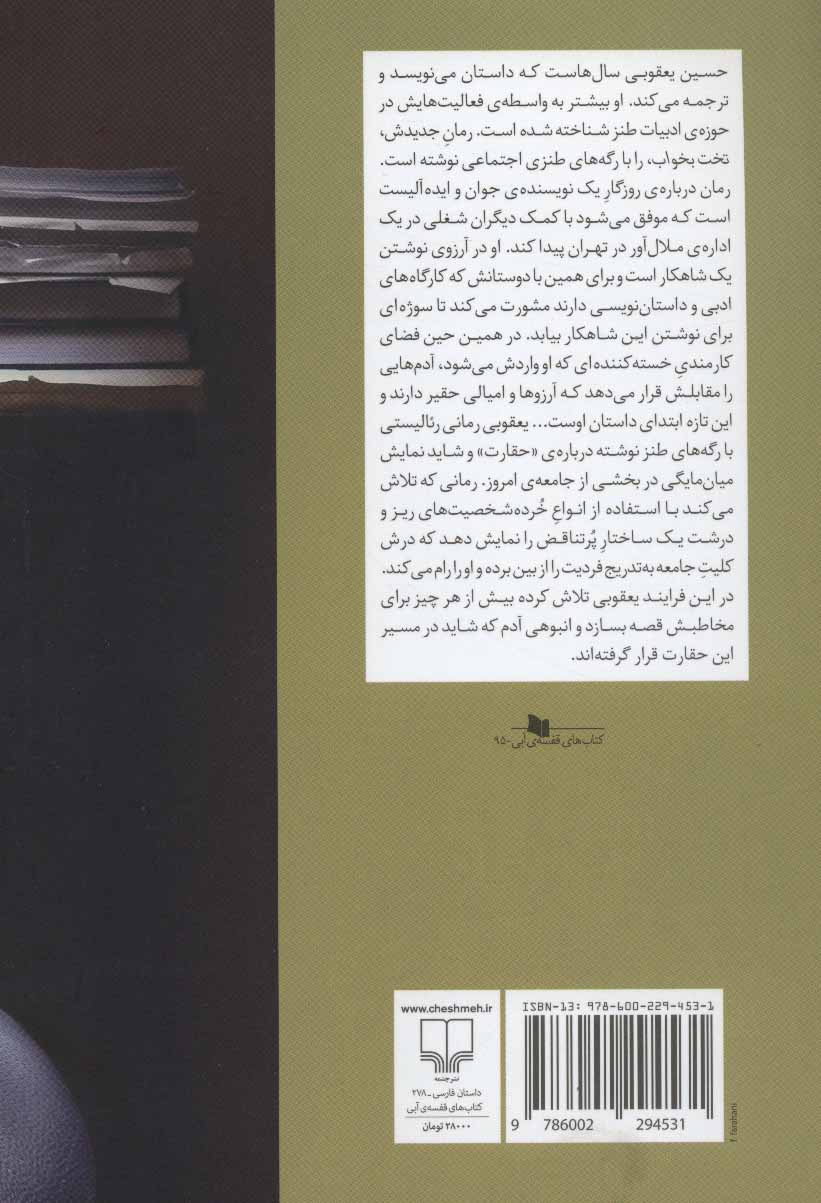 حسین یعقوبی سال‌هاست که داستان می‌نویسد و
ترجمه می‌کند. او بیشتر به واسطه‌ی فعالیت‌هایش در
حوزه‌ی ادبیات طنز شناخته شده است. رمانِ جدیدش،
تخت بخواب، را با رگه‌های طنزی اجتماعی نوشته است.
رمان درباره‌ی روزگارِ یک نویسنده‌ی جوان و ایده‌آلیست
است که موفق می‌شود با کمک دیگران شغلی در یک
اداره‌ی ملال‌آور در تهران پیدا کند. او در آرزوی نوشتن
یک شاهکار است و برای همین با دوستانش که کارگاه‌های
ادبی و داستان‌نویسی دارند مشورت می‌کند تا سوژه‌ای
برای نوشتن این شاهکار بیابد. در همین حین فضای
کارمندیِ خسته‌کننده‌ای که او واردش می‌شود، آدم‌هایی
را مقابلش قرار می‌دهد که آرزوها و امیالی حقیر دارند و
این تازه ابتدای داستان اوست... یعقوبی رمانی رئالیستی
با رگه‌های طنز نوشته درباره‌ی «حقارت» و شاید نمایش
میان‌مایگی در بخشی از جامعه‌ی امروز. رمانی که تلاش
می‌کند با استفاده از انواعِ خُرده‌شخصیت‌های ریز و
درشت یک ساختارِ پُرتناقض را نمایش دهد که درش
کلیتِ جامعه به‌تدریج فردیت را از بین برده و او را رام می‌کند.
در این فرایند یعقوبی تلاش کرده بیش از هر چیز برای
مخاطبش قصه بسازد و انبوهی آدم که شاید در مسیر
این حقارت قرار گرفته‌اند.
کتاب‌های قفسه‌ی آبی-۹۵
ISBN-13: 978-600-229-453-1
9 786002 294531
www.cheshmeh.ir
نشرچشمه
داستان فارسی ـ ۲۷۸
کتاب‌های قفسه‌ی آبی
۲۸۰۰۰ تومان
f. farahani